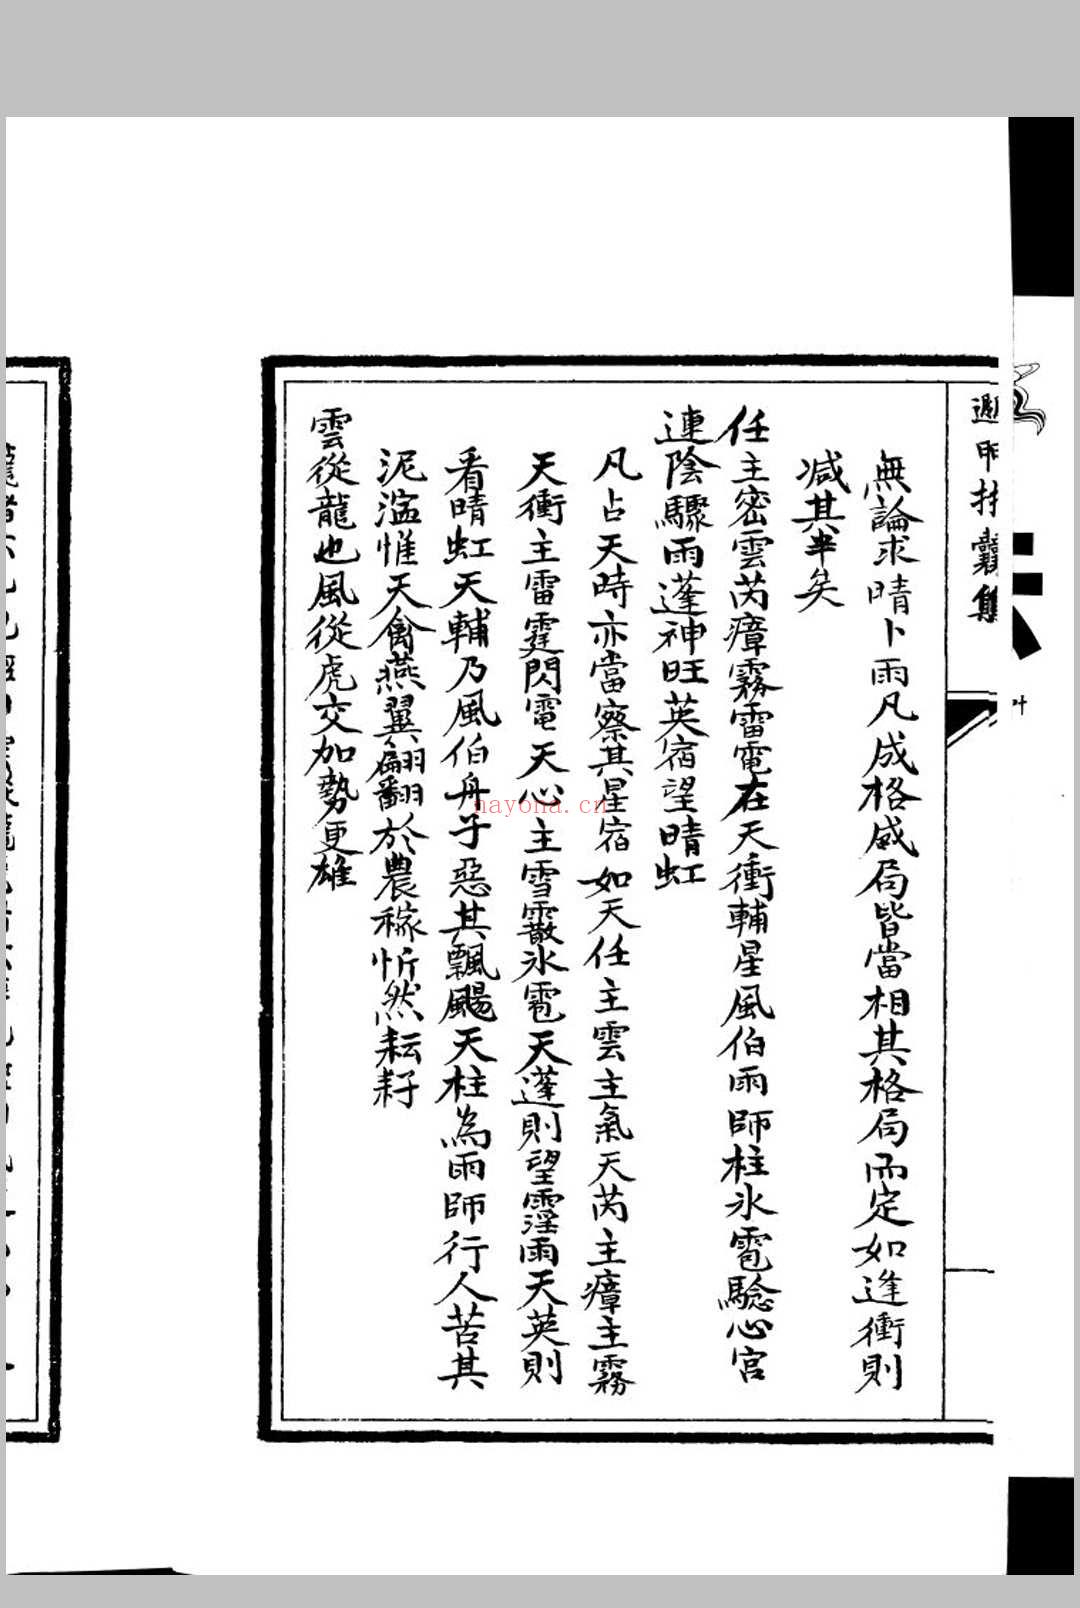 無論求晴卜雨凡成格成局皆當相其格局而定如逢衝則
減其半矣
任主密雲芮瘴霧雷電在天衝輔星風伯雨師柱氷雹驗心宮
連陰驟雨蓬神旺英宿望晴虹
凡占天時亦當察其星宿如天任主雲主氣天芮主瘴主霧
天衝主雷霆閃電天心主雪霰氷雹天蓬則望霪雨天英則
看晴虹天輔乃風伯舟子惡其飄颺天柱為雨師行人苦其
泥濘惟天禽燕翼翩翻於農稼忻然耘耔
雲從龍也風從虎交加勢更雄
nayona.cn